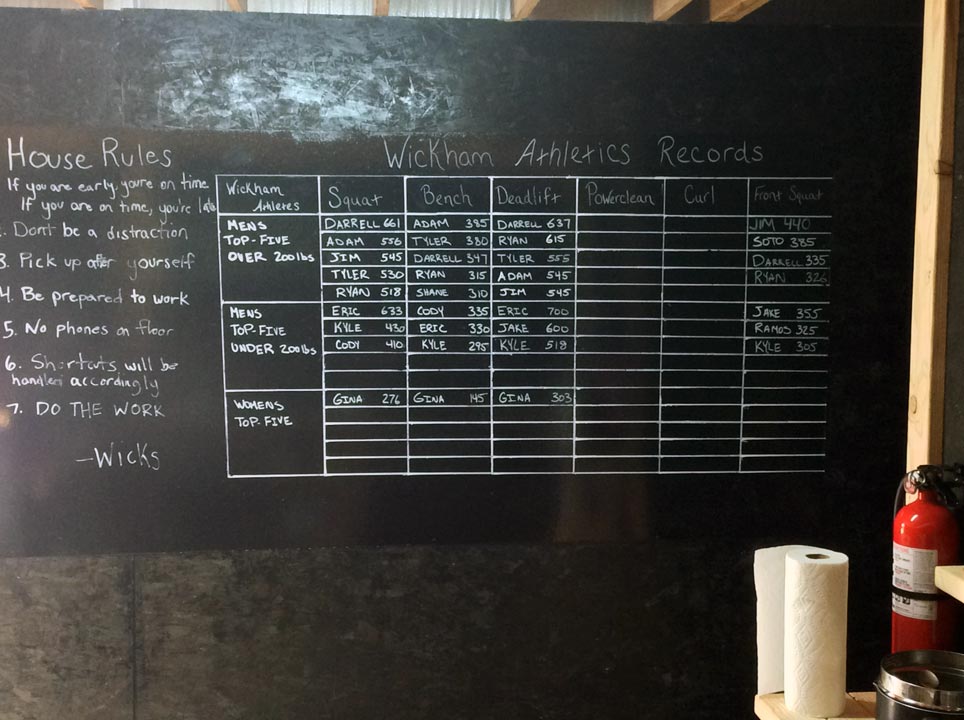 House Rules
If you are early, you're on time
If you are on time, you're late
2. Don't be a distraction
3. Pick up after yourself
4. Be prepared to work
5. No phones on floor
6. Shortcuts will be
handled accordingly
7. DO THE WORK
—Wicks
Wickham Athletics Records
Wickham Athletes Squat Bench Deadlift Powerclean Curl Front Squat
MENS TOP-FIVE OVER 200lbs
DARRELL 661 ADAM 385 DARRELL 637 JIM 440
ADAM 556 TYLER 380 RYAN 615 SOTO 385
JIM 545 DARRELL 347 TYLER 555 DARRELL 335
TYLER 530 RYAN 315 ADAM 545 RYAN 326
RYAN 518 SHANE 310 JIM 545
MENS TOP-FIVE UNDER 200lbs
ERIC 633 CODY 335 ERIC 700 JAKE 355
KYLE 430 ERIC 330 JAKE 600 RAMOS 325
CODY 410 KYLE 295 KYLE 518 KYLE 305
WOMENS TOP-FIVE
GINA 276 GINA 145 GINA 303